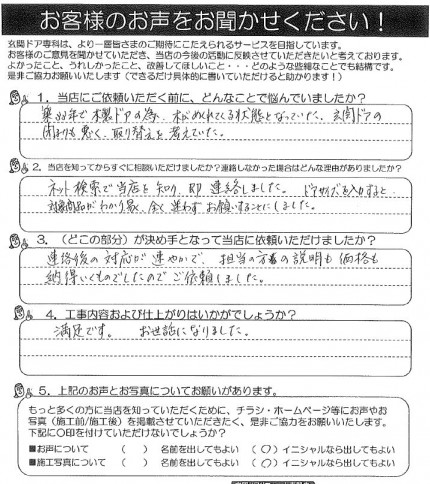 お客様のお声をお聞かせください！
玄関ドア専科は、より一層皆さまのご期待にこたえられるサービスを目指しています。
お客様のご意見を聞かせていただき、当店の今後の活動に反映させていただきたいと考えております。
よかったこと、うれしかったこと、改善してほしいこと・・・どのような些細なことでも結構です。
是非ご協力お願いいたします（できるだけ具体的に書いていただけると助かります！）
1．当店にご依頼いただく前に、どんなことで悩んでいましたか？
築33年で木製ドアの為、 れている状態となっていた。玄関ドアの
閉まりも悪く、取り替えを考えていた。
2．当店を知ってからすぐに相談いただけましたか？連絡しなかった場合はどんな理由がありましたか？
ネット検索で当店を知り、即連絡しました。ドアサイズを入力すると
対象商品がわかり易く、全く迷わずお願いすることにしました。
3．（どこの部分）が決め手となって当店に依頼いただけましたか？
連絡後の対応が速やかで、担当の方の説明も価格も
納得いくものでしたのでご依頼しました。
4．工事内容および仕上がりはいかがでしょうか？
満足です。 お世話になりました。
5．上記のお声とお写真についてお願いがあります。
もっと多くの方に当店を知っていただくために、チラシ・ホームページ等にお声やお
写真（施工前/施工後）を掲載させていただきたく、是非ご協力をお願いいたします。
下記に〇印を付けていただけないでしょうか？
■お声について （ ）名前を出してもよい （〇）イニシャルなら出してもよい
■施工写真について （ ）名前を出してもよい （〇）イニシャルなら出してもよい